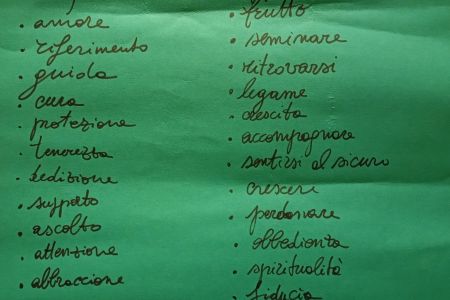 · amore
· riferimento
· guida
· cura
· protezione
· tenerezza
· dedizione
· supporto
· ascolto
· attenzione
· abbraccione
· frutto
· seminare
· ritrovarsi
· legame
· crescita
· accompagnare
· sentirsi al sicuro
· crescere
· perdonare
· obbedienza
· spiritualità
· fiducia